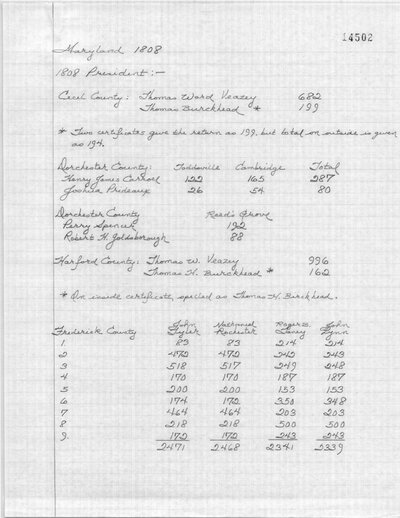 14502
Maryland 1808
1808 President:—
Cecil County: Thomas Ward Veazey 682
Thomas Burckhead * 199
* Two certificates give the return as 199, but total on outside is given
as 194.
Dorchester County: Toddsville Cambridge Total
Henry James Carroll 122 165 287
Joshua Prideaux 26 54 80
Dorchester County Reed's Grove
Perry Spencer 192
Robert H. Goldsborough 88
Harford County: Thomas W. Veazey 996
Thomas H. Burckhead * 162
* On inside certificate spelled as Thomas H. Birckhead.
Frederick County John Tyler Nathaniel Rochester Roger B. Taney John Lynn
1 83 83 214 214
2 472 472 242 243
3 518 517 249 248
4 170 170 187 187
5 200 200 153 153
6 174 172 350 348
7 464 464 203 203
8 218 218 500 500
9 172 172 243 243
2471 2468 2341 2339